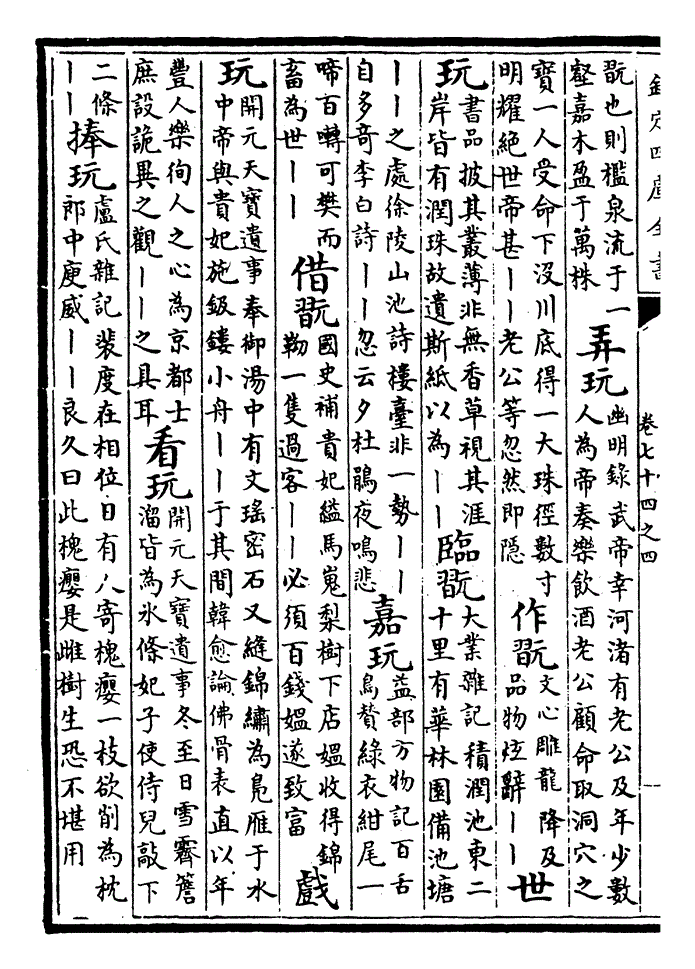 欽定四庫全書
卷七十四之四
翫也則檻泉流于一
壑嘉木盈于萬株
弄玩
幽明錄武帝幸河渚有老公及年少數
人為帝奏樂飲酒老公顧命取洞穴之
寳一人受命下沒川底得一大珠徑數寸
明耀絕世帝甚——老公等忽然即隱
作翫
文心雕龍降及
品物炫辭——
世
玩
書品披其叢薄非無香草視其涯
岸皆有潤珠故遺斯紙以為——
臨翫
大業雜記積潤池東二
十里有華林園備池塘
——之處徐陵山池詩樓臺非一勢——
自多奇李白詩——忽云夕杜鵑夜鳴悲
嘉玩
益部方物記百舌
鳥贊綠衣紺尾一
啼百囀可樊而
畜為世——
借翫
國史補貴妃縊馬嵬梨樹下店媼收得錦
靿一隻過客——必須百錢媼遂致富
戲
玩
開元天寶遺事奉御湯中有文瑤密石又縫錦繡為鳧雁于水
中帝與貴妃施鈒鏤小舟——于其間韓愈論佛骨表直以年
豐人樂徇人之心為京都士
庶設詭異之觀——之具耳
看玩
開元天寶遺事冬至日雪霽簷
溜皆為氷條妃子使侍兒敲下
二條
——
捧玩
盧氏雜記裴度在相位日有人寄槐癭一枝欲削為枕
郎中庾威——良久曰此槐癭是雌樹生恐不堪用